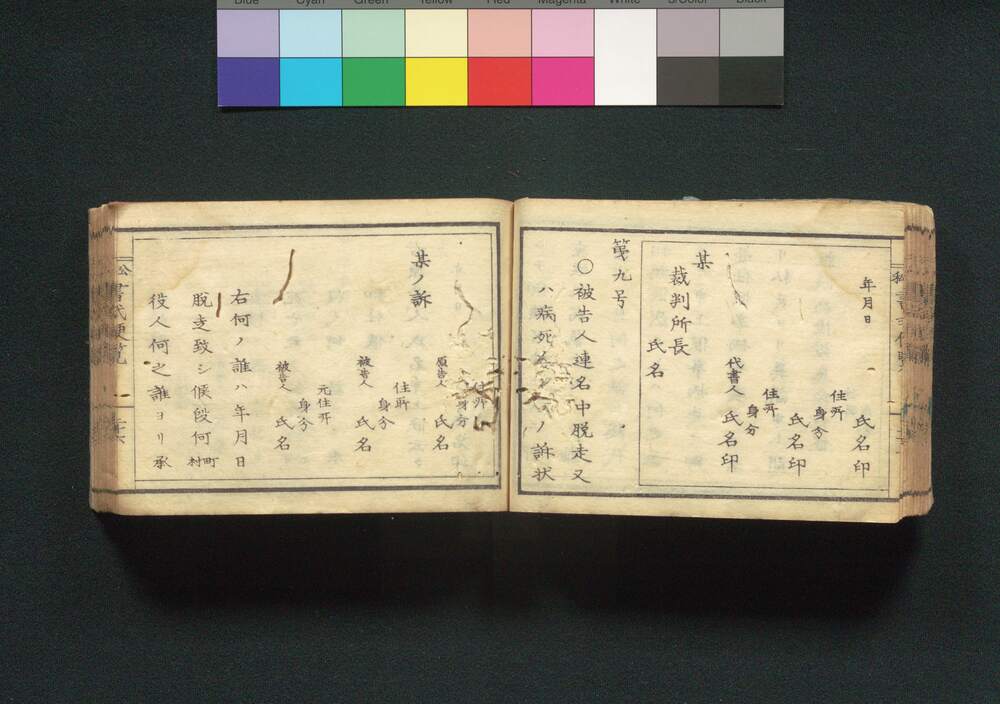 Blue Cyan Green Yellow Red Magenta White 3/Color Black
年月日
氏名印
住所
身分
氏名印
住所
身分
代書人 氏名印
某
裁判所長
氏名
第九号
○被告人連名中脱走又
ハ病死 ノ訴状
某ノ訴
住所
身分
原告人 氏名
住所
身分
被告人 氏名
元住所
身分
被告人 氏名
右何ノ誰ハ年月日
脱走致シ候段何町村
役人何之誰ヨリ承
公 書式便覧